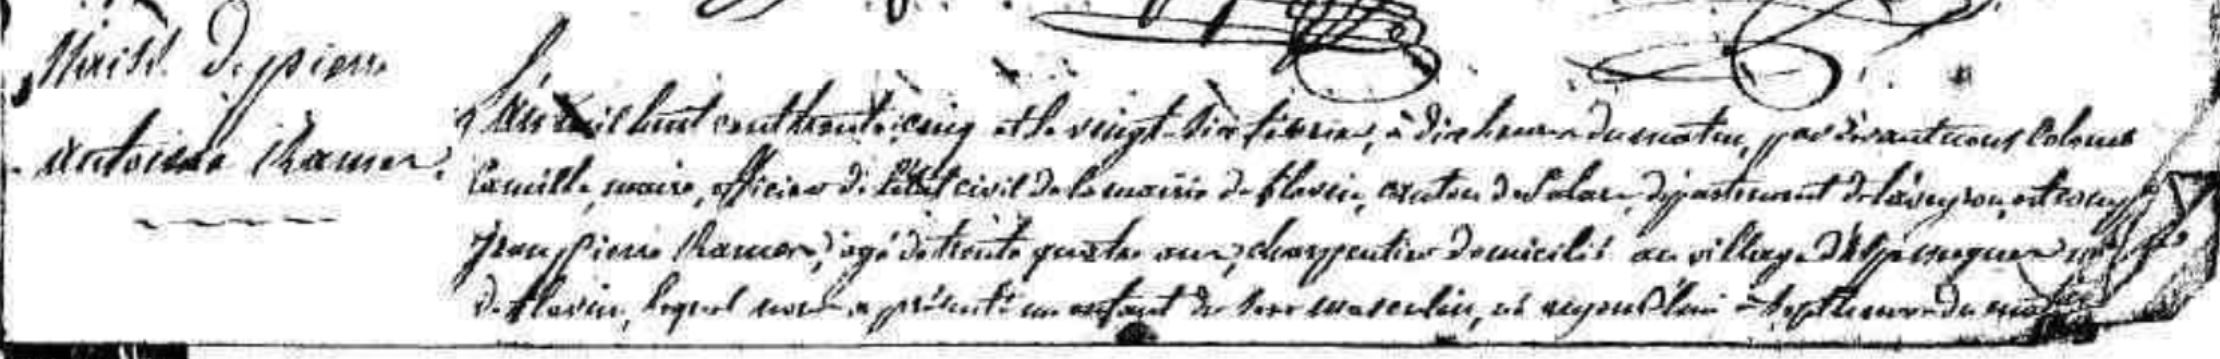 Naiss. de pierre
antoine Ramon.
L'an mil huit cent trente cinq et le vingt six février, à dix heures du matin, par devant nous Colomb
Camille, maire, officier de l'état civil de la mairie de flavin, canton de Salars, département de l'aveyron, est comparu
Jean Pierre Ramon, agé de trente quatre ans, charpentier domicilié au village
de flavin, lequel nous a présenté un enfant du sexe masculin, né aujourd'hui à sept heures du matin